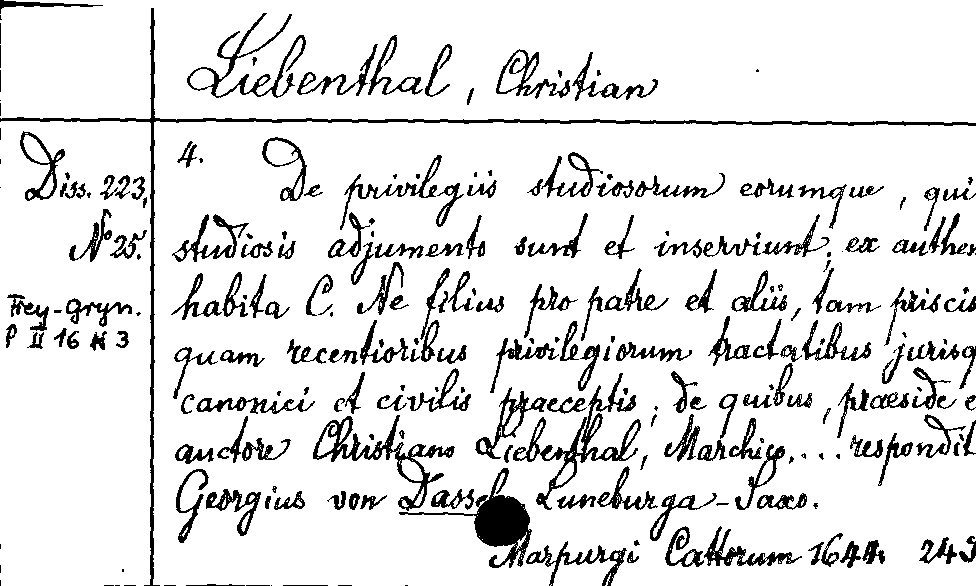 Liebenthal, Christian
Diss. 223,
No 25.
Frey-Gryn.
P II 16 N 3
4. De privilegiis studiosorum eorumque, qui
studiosis adjumento sunt et inserviunt; ex authen
habita C. Ne filius pro patre et aliis, tam priscis
quam recentioribus privilegiorum tractatibus jurisq
canonici et civilis praeceptis; de quibus, praeside e
auctore Christiano Liebenthal, Marchico, ... respondit
Georgius von Dassel Luneburga-Saxo.
Marpurgi Cattorum 1644. 24S